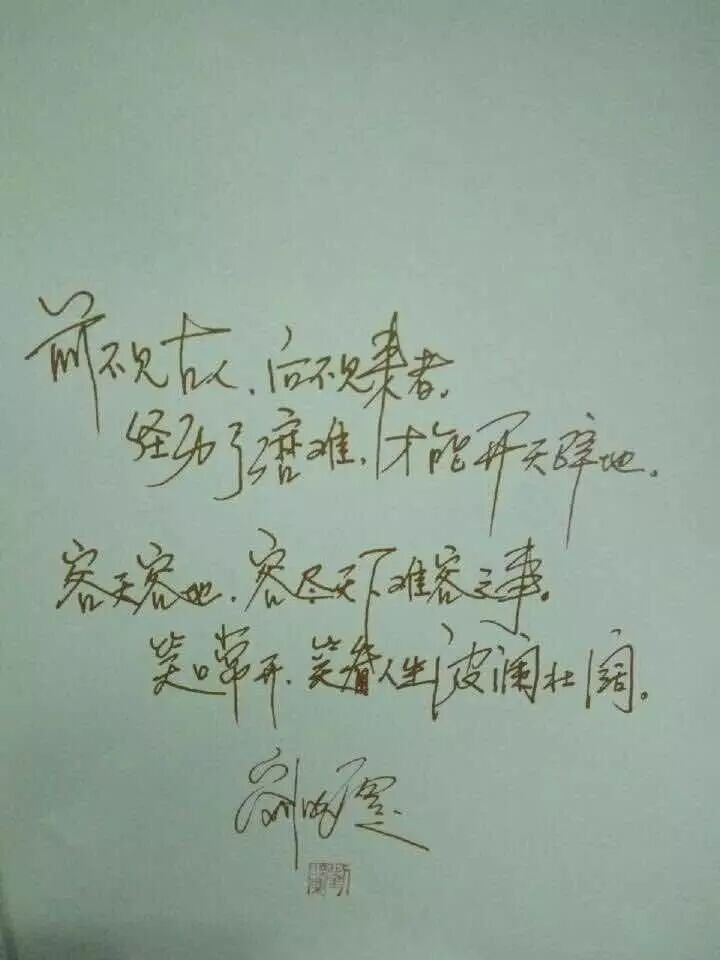 前不见古人、后不见来者。
经历了磨难，才能开天辟地。
容天容地、容尽天下难容之事。
笑口常开、笑看人生波澜壮阔。
刘